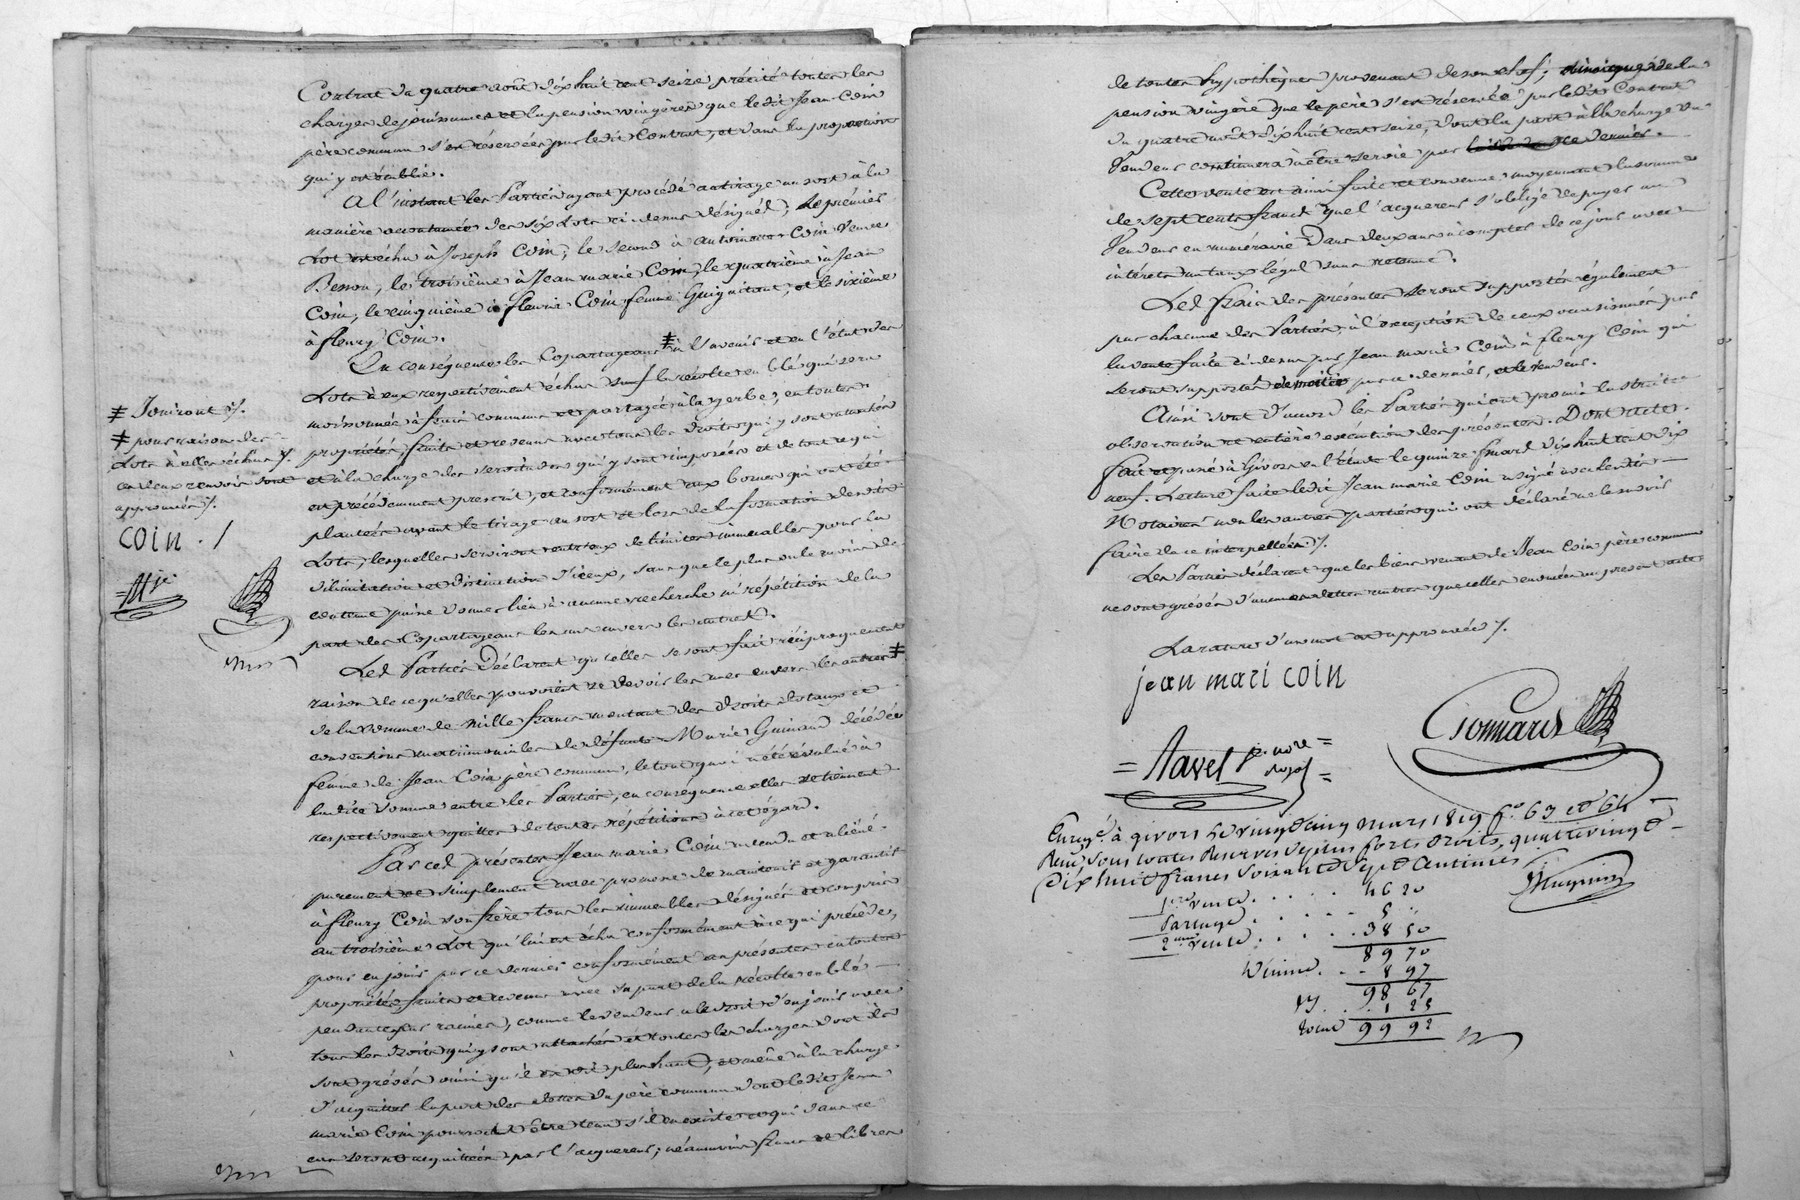 Contrat du quatre août dix huit cent seize précité toutes les
charges de jouissances et la pension viagère que ledit Jean Coin
père commun s'est réservées par ledit Contrat, et dans la proportion
qui y est établie.
A l'instant les Parties ayant procédé au tirage au sort à la
manière accoutumée des six Lots ci dessus désignés; le premier
Lot est échu à Joseph Coin; le second à antoinette Coin veuve
Besson, le troisième à Jean marie Coin, le quatrième à Jean
Coin, le cinquième à fleurie Coin femme Guignitant, et le sixième
à fleury Coin.
En conséquence les Copartageans ⧧ à l'avenir et en l'état des
Lots à eux respectivement échus sauf la récolte en blé qui sera
moissonnée à frais communs et partagée à la gerbe, en toutes
propriétés, fruits et revenus avec tous les droits qui y sont attachés
et à la charge des servitudes qui y sont imposées et de tout ce qui
est précédemment prescrit, et conformément aux bornes qui ont été
plantées avant le tirage au sort et lors de la formation desdits
Lots, lesquelles serviront entr'eux de limites immuables pour la
délimitation et distinction d'iceux, sans que le plus ou le moins de
contenue puisse donner lieu à aucune recherche ni répétition de la
part des Copartageans les uns envers les autres.
Les Parties déclarent qu'elles se sont fait réciproquement
raison de ce qu'elles pouvoient se devoir les unes envers les autres ⧧
de la somme de mille francs montant des droits dotaux et
conventions matrimoniales de défunte Marie Guinand décédée
femme de Jean Coin père commun, le tout quoi a été évalué à
ladite somme entre les Parties, en conséquence elles se tiennent
respectivement quittes de toutes répétitions à cet égard.
Par ces présentes Jean marie Coin a vendu et aliéné
purement et simplement avec promesse de maintenir et garantir
à fleury Coin son frère tous les immeubles désignés et compris
au troisième Lot qu'lui est échu conformément à ce qui précède,
pour en jouir par ce dernier conformément au présentes en toutes
propriétés, fruits et revenus avec sa part de la récolte en blé
pendante par racines, comme le vendeur a le droit d'en jouir avec
tous les droits qui y sont attachés et toutes les charges dont ils
sont grévés ainsi qu'il est dit plus haut, et même à la charge
d'acquitter la part des dettes du père commun dont ledit Jean
marie Coin pourroit être tenu s'il en existe ce qui dans ce
cas seront acquittées par l'acquereur; néanmoins francs et libres
⧧ Jouiront ./.
⧧ pour raison des
Lots à elles échus ./.
ces deux renvois sont
approuvés ./.
COIN . /
de toutes hypothèques provenant de son chef;
pension viagère que le père s'est réservée par ledit Contrat
du quatre août dix huit cent seize, dont la part à la charge du
Vendeur continuera à être servie par
Cette vente est ainsi faite et convenue moyennant la somme
de sept cents francs que l'acquereur s'oblige de payer au
Vendeur en numéraire dans deux ans à compter de ce jour avec
intérêts au taux légal sans retenue.
Les frais des présentes seront supportés également
par chacune des Parties, à l'exception de ceux occasionnés par
la vente faite ci dessus par Jean marie Coin à fleury Coin qui
seront supportés de moitié par ce dernier, et le vendeur.
Ainsi sont d'accord les Parties qui ont promis la stricte
observation et entière exécution des présentes. Dont acte.
fait et passé à Givors en l'étude le quinze mars dix huit cent dix
neuf. Lecture faite ledit Jean marie Coin a signé avec lesdits
Notaires non les autres parties qui ont déclaré ne le savoir
faire de ce interpellés ./.
Les Parties déclarent que les biens venant de Jean Coin père commun
ne sont grévés d'aucunes dettes autres que celles énoncées au présent acte
La rature d'un mot est approuvée ./.
jean mari COIN
Navel
Gonnard
Enregé à givors le vingt cinq mars 1819 f.o 63 et 64
Reçu sous toutes Réserves de plus forts droits, quatre vingt
dix huit francs soixante sept Centimes
1ere vente . . . . 46 20
Partage . . . . . 5 .
2eme vente . . . . 38 50
89 70
Dixime . . . 8 97
98 67
. . . 1 25
total 99 92